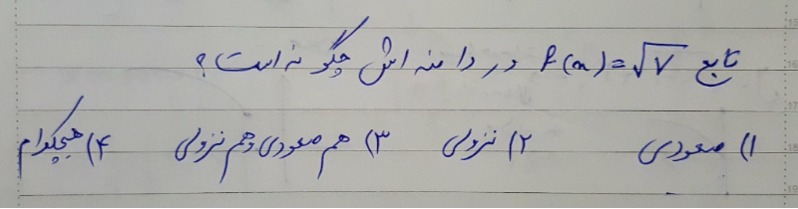 تابع f(x)=√7 در دامنه اش چگونه است؟
۱) صعودی ۲) نزولی ۳) هم صعودی و هم نزولی ۴) هیچکدام